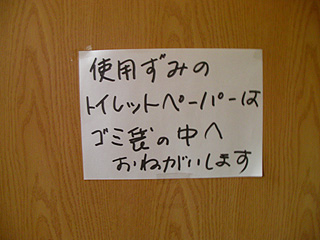 使用ずみの
トイレットペーパーは
ゴミ袋の中へ
おねがいします